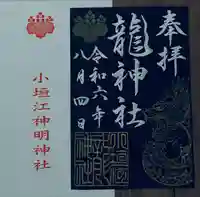 奉拝
龍神社
令和六年
八月四日
小垣江神明神社